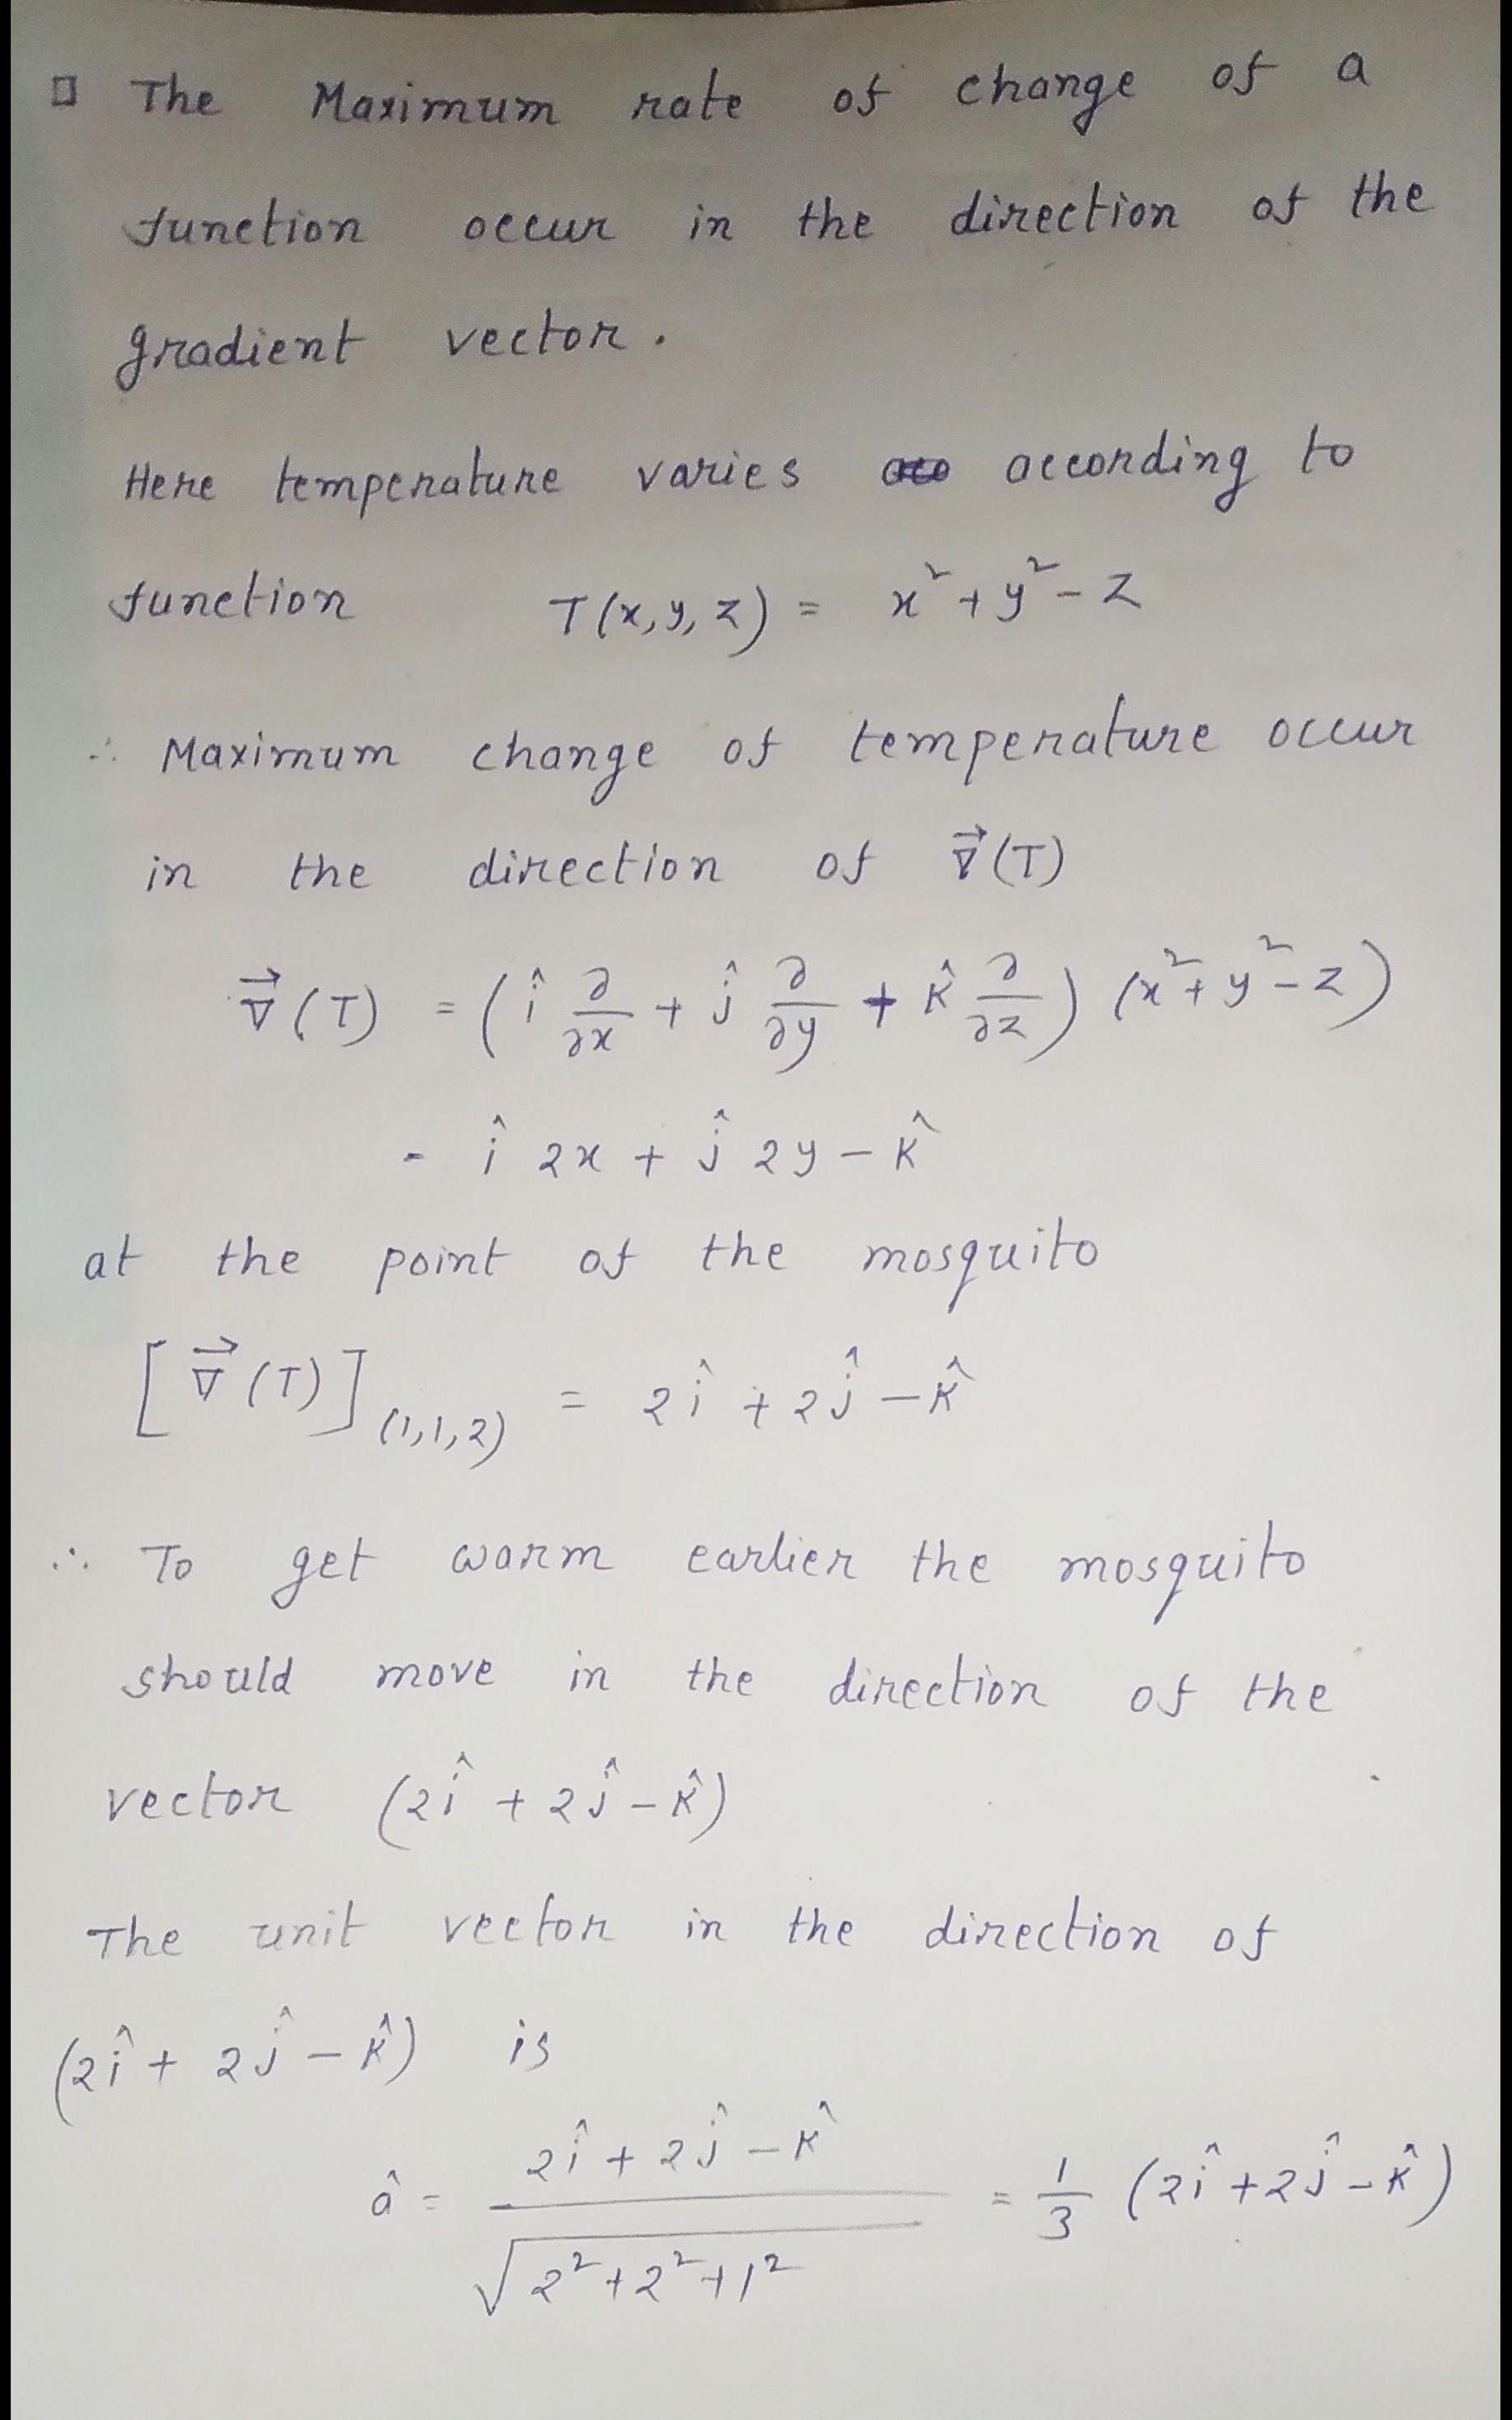 The Maximum rate of change of a
function occur in the direction of the
gradient vector.
Here temperature varies according to
function T(x,y,z) = x²+y²-z
∴ Maximum change of temperature occur
in the direction of ∇⃗(T)
∇⃗(T) = (î ∂/∂x + ĵ ∂/∂y + k̂ ∂/∂z) (x²+y²-z)
= î 2x + ĵ 2y - k̂
at the point of the mosquito
[∇⃗(T)](1,1,2) = 2î + 2ĵ - k̂
∴ To get warm earlier the mosquito
should move in the direction of the
vector (2î + 2ĵ - k̂)
The unit vector in the direction of
(2î + 2ĵ - k̂) is
â = (2î + 2ĵ - k̂)/√(2²+2²+1²) = 1/3 (2î+2ĵ-k̂)